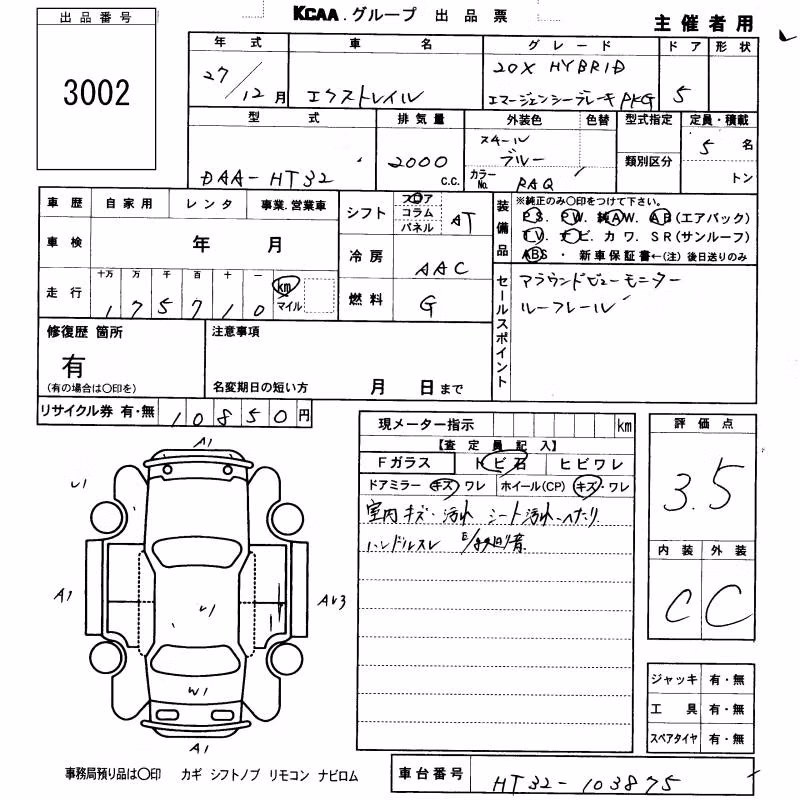 KCAA.グループ 出品票
主催者用
出品番号
3002
年式 車名 グレード ドア 形状
27/12月 エクストレイル 20X HYBRID エマージェンシーブレーキPKG 5
型式 排気量 外装色 色替 型式指定 定員・積載
DAA-HT32 2000 C.C. スチール ブルー 類別区分 5名
カラーNo. RAQ トン
車歴 自家用 レンタ 事業.営業車
車検 年 月
走行 十万 万 千 百 十 一
175710 km マイル
シフト フロア コラム パネル AT
冷房 AAC
燃料 G
装備品 ※純正のみ○印をつけて下さい。
P S. P W. 純 A W. A B (エアバック)
T V. ナビ. カワ. S R (サンルーフ)
ABS ・ 新車保証書←(注) 後日送りのみ
セールスポイント
アラウンドビューモニター
ルーフレール
修復歴 箇所
有
(有の場合は○印を)
注意事項
名変期日の短い方 月 日まで
リサイクル券 有・無 10850円
現メーター指示 km
【査定員記入】
Fガラス トビ石 ヒビワレ
ドアミラー キズ・ワレ ホイール(CP) キズ・ワレ
室内キズ・汚れ シート汚れ・ヘたり
ハンドルスレ
評価点
3.5
内装 外装
C C
A1
U1
A1
AU3
U1
W1
A1
ジャッキ 有・無
工具 有・無
スペアタイヤ 有・無
事務局預り品は○印 カギ シフトノブ リモコン ナビロム
車台番号 HT32-103875